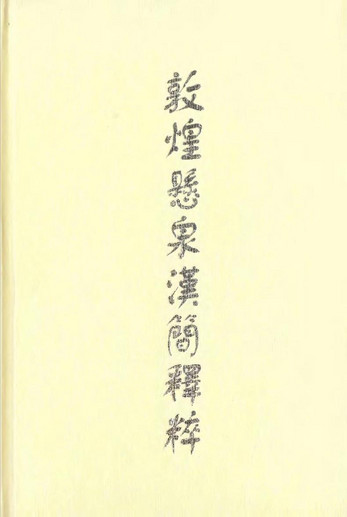 敦煌懸泉漢簡釋粹